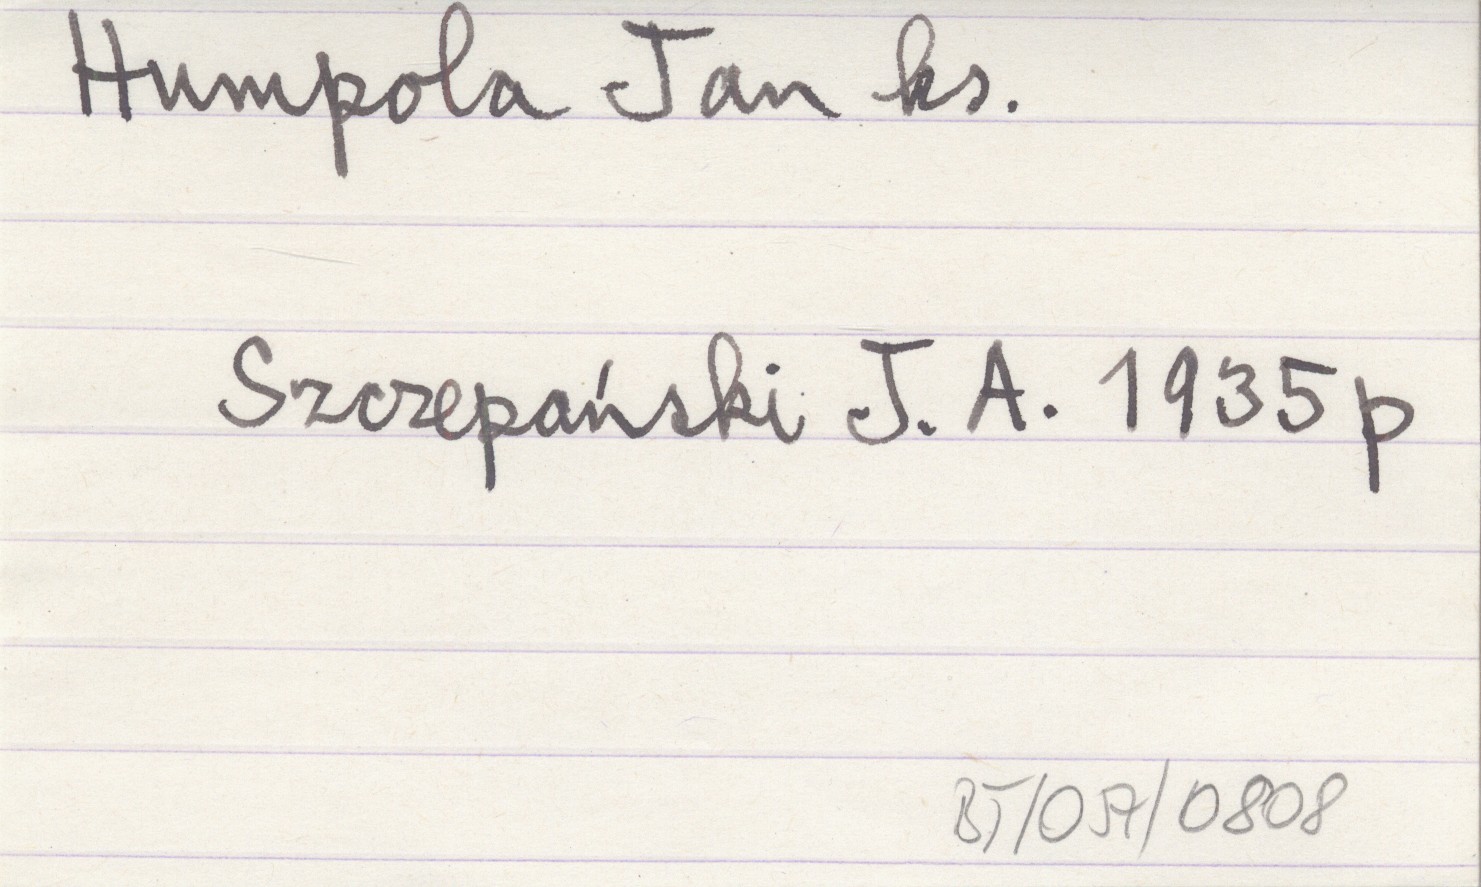 Humpola Jan ks.
Szczepański J. A. 1935p
BT/057/0808